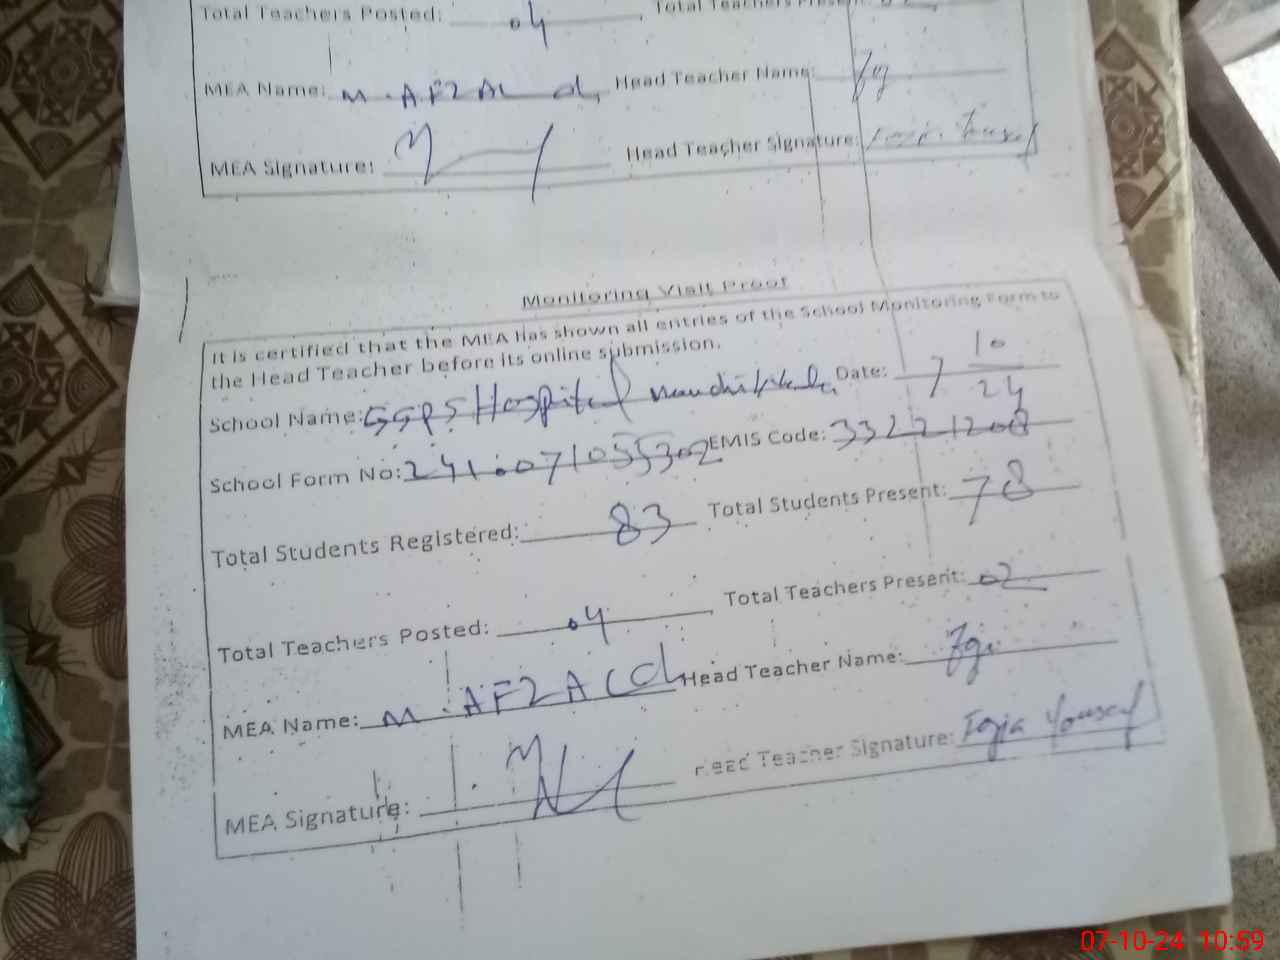 Total Teachers Posted: 04 Total Teachers Present:
MEA Name: M. AFZAL Head Teacher Name:
MEA Signature: Head Teacher Signature:
Monitoring Visit Proof
It is certified that the MEA has shown all entries of the School Monitoring Form to
the Head Teacher before its online submission.
School Name: GGPS Hospital Date: 7 10/24
School Form No: EMIS Code: 33221208
Total Students Registered: 83 Total Students Present: 78
Total Teachers Posted: 04 Total Teachers Present: 02
MEA Name: M. AFZAL Head Teacher Name:
MEA Signature: Head Teacher Signature: Yousaf
07-10-24 10:59